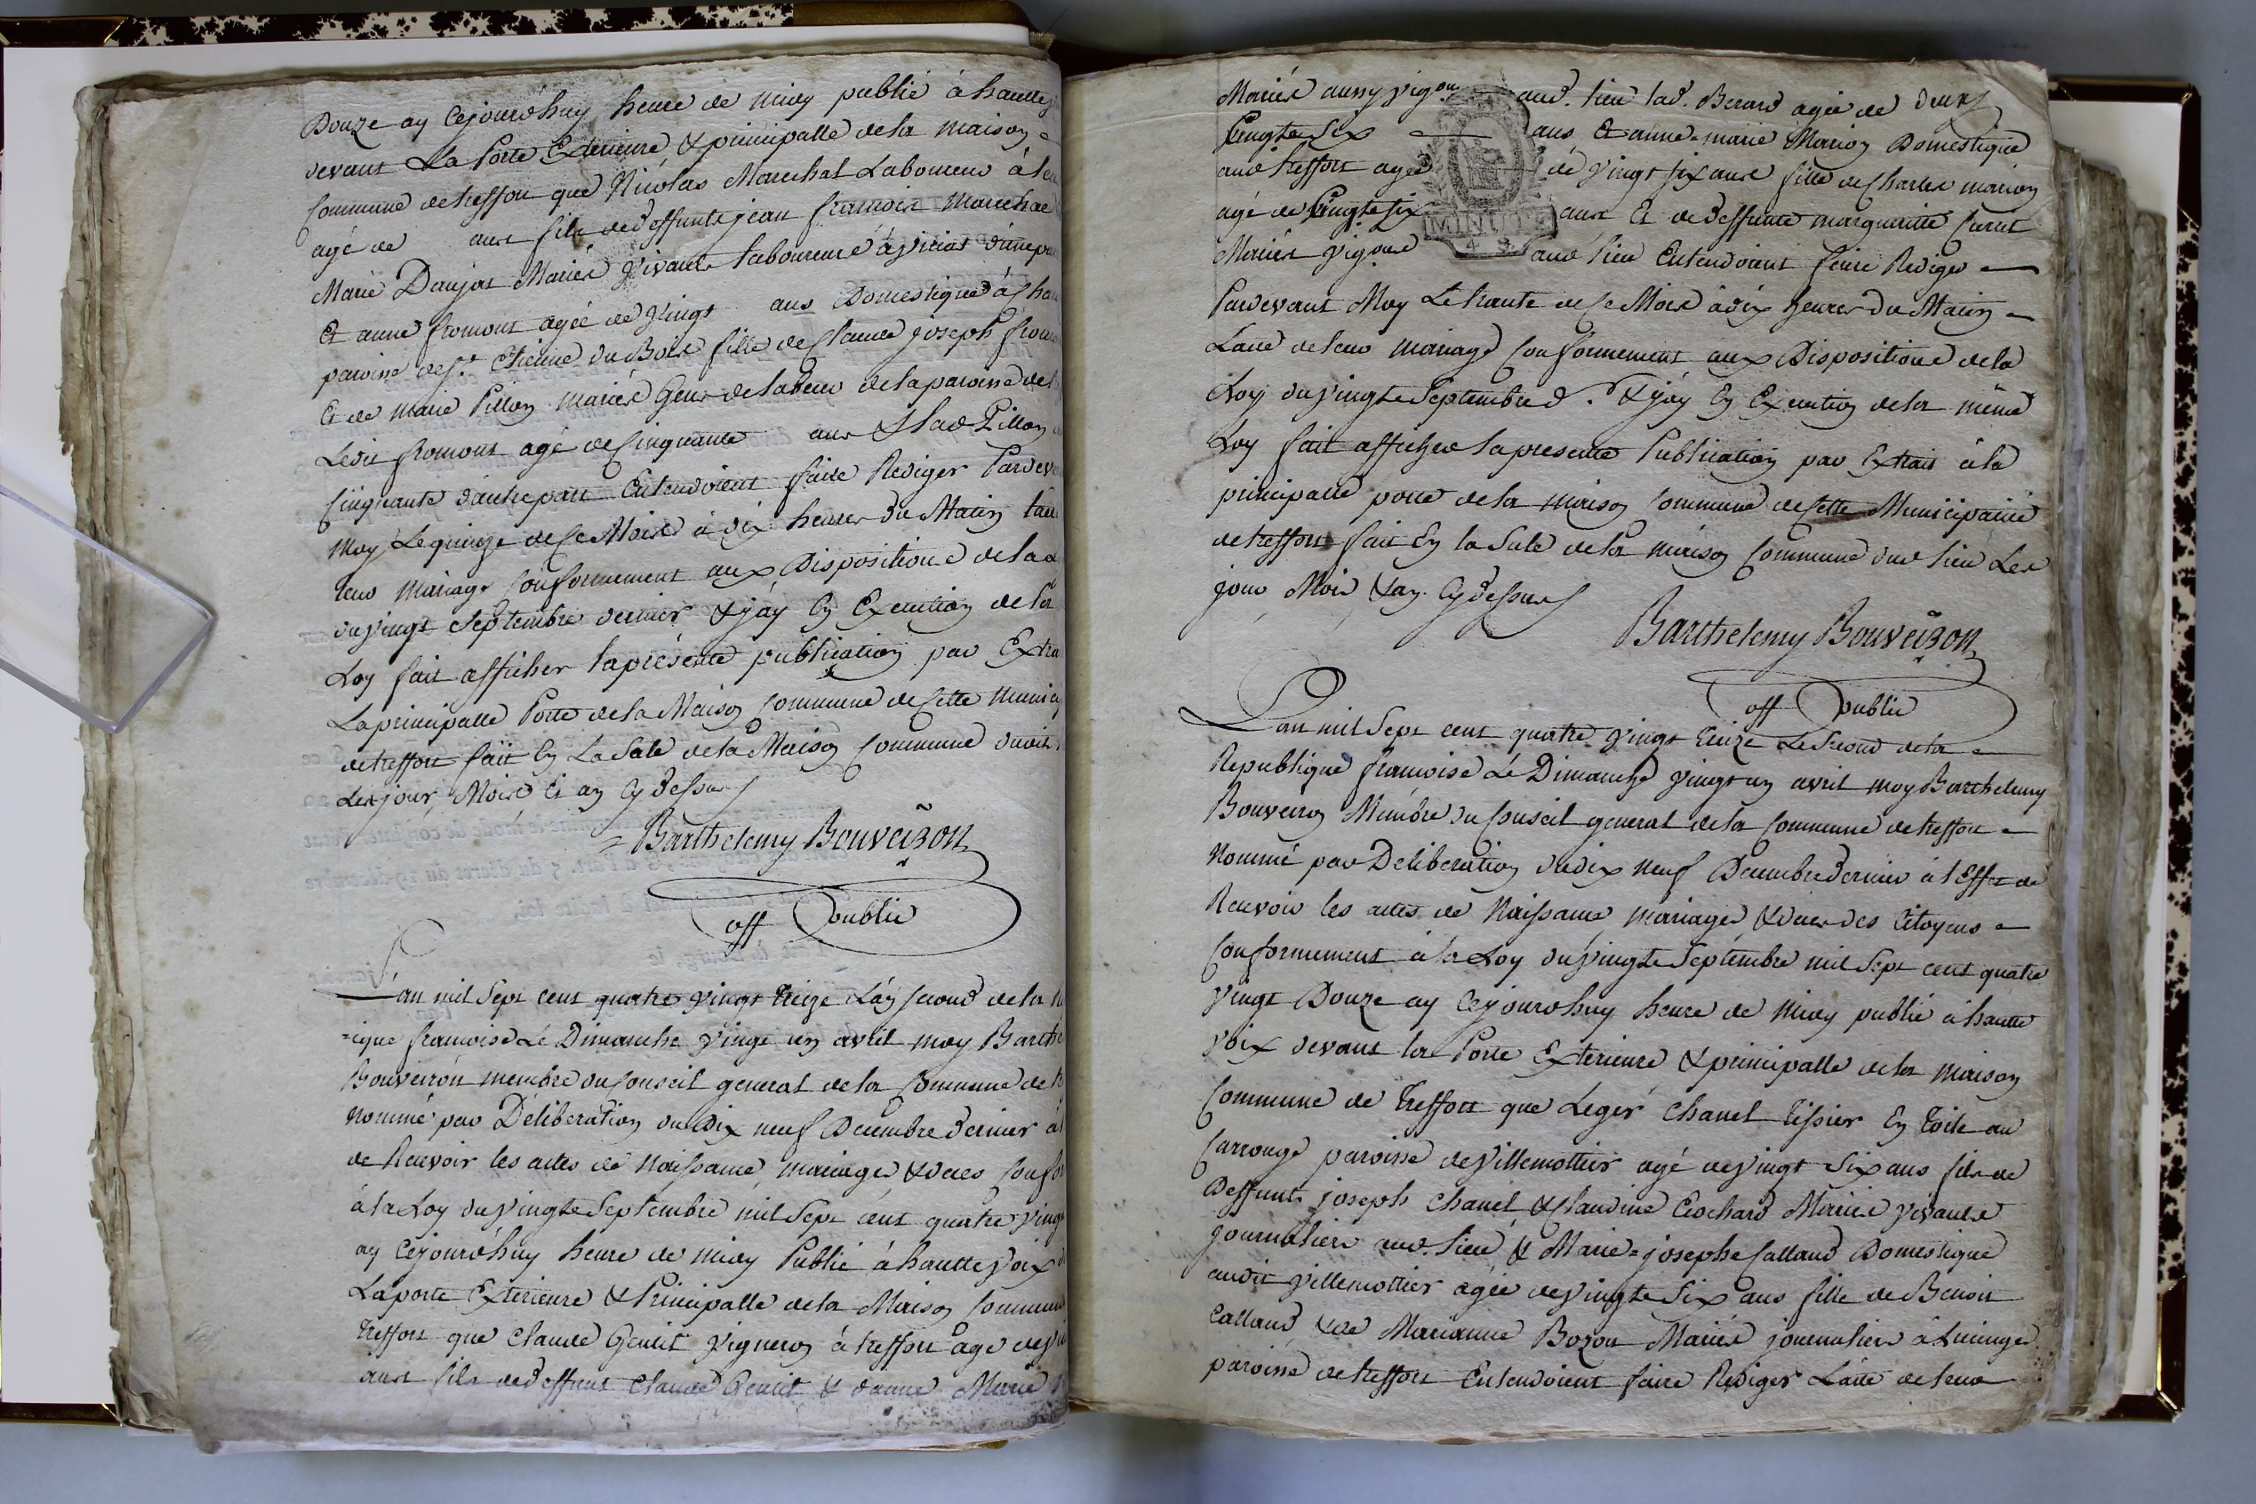 Douze ay cejourd'huy heure de midy publié à hautte
devant La Porte Exterieure & principalle de la maison
Commune de treffort que Nicolas Marechal Laboureur à
agé de ans fils de deffunts jean francois Marechal
Marie Danjat Mariés vivants laboureurs à d'une
Et anne fromont agée de vingt ans Domestique à
paroisse de St. Etienne du Bois fille de Claude joseph
Et de Marie Pillon mariés Gens de labeur de la paroisse de
Ledit fromont agé de Cinquante ans & lad Pillon
Cinquante d'autre part Entendoient faire Rediger Pardev
Moy Le quinze de Ce Mois à dix heures du Matin
leur Mariage Conformement aux Dispositions de la
du vingt Septembre dernier & j'ay En Execution de la
Loy fait afficher la présente publication par Extra
La principalle Porte de la Maison Commune de Cette Munici
de treffort fait En La Sale de la Maison Commune
Les jour, Mois et an Cy dessus
Barthelemy Bouveiron
off public
L'an mil Sept cent quatre vingt treize L'an second de la
=ique francoise Le Dimanche vingt un avril moy Barthe
Bouveiron membre du Conseil general de la Commune de
Nommé par Déliberation du Dix neuf Decembre dernier à
de Recevoir les actes de Naissance, mariages & deces Confor
à la Loy du vingt Septembre mil Sept cent quatre vingt
ay Cejourd'huy heure de midy Publié à hautte voix
La porte Exterieure & Principalle de la Maison Commune
treffort que Claude Genlit vigneron à treffort agé de
ans fils de deffunt Claude Genlit & d'anne Marie
Mariés aussy aud. lieu lad. Berard agée de
Cinquante Six ans Et anne=marie Marion Domestique
aud treffort agée de vingt six ans fille de Charles Marion
agé de Cinquante six ans Et de deffunte Marguerite
Mariés aud lieu Entendoient faire Rediger
MINUTE
Pardevant Moy Le trante de Ce Mois à dix heures du Matin
L'acte de leur mariage Conformement aux Dispositions de la
Loy du vingt Septembre d. & j'ay En Execution de la même
Loy fait afficher la presente Publication par Extrait à la
principalle porte de la maison Commune de Cette Municipalité
de treffort fait En la Sale de la maison Commune dud lieu Les
jour Mois & an Cy dessus
Barthelemy Bouveiron
off public
L'an mil Sept cent quatre vingt treize Le Second de la
Republique francoise Le Dimanche vingt un avril moy Barthelemy
Bouveiron Membre du Conseil general de la Commune de treffort
Nommé par Deliberation du dix neuf Decembre dernier à l'Effet de
Recevoir les actes de Naissance, mariages, & deces des Citoyens
Conformement à la Loy du vingt Septembre mil Sept cent quatre
vingt Douze ay Cejourd'huy heure de midy publié à hautte
voix devant la Porte Exterieure & principalle de la Maison
Commune de treffort que Leger Chanel tissier En toile au
Carrouge paroisse de villemottier agé de vingt Six ans fils de
Deffunts joseph Chanel & Claudine Mariés vivants
journaliers aud. lieu & Marie=josephe Calland Domestique
audit villemottier agée de vingt Six ans fille de Benoit
Calland & de Marianne Bozon Mariés journaliers à Lucinge
paroisse de treffort Entendoient faire Rediger L'acte de leur